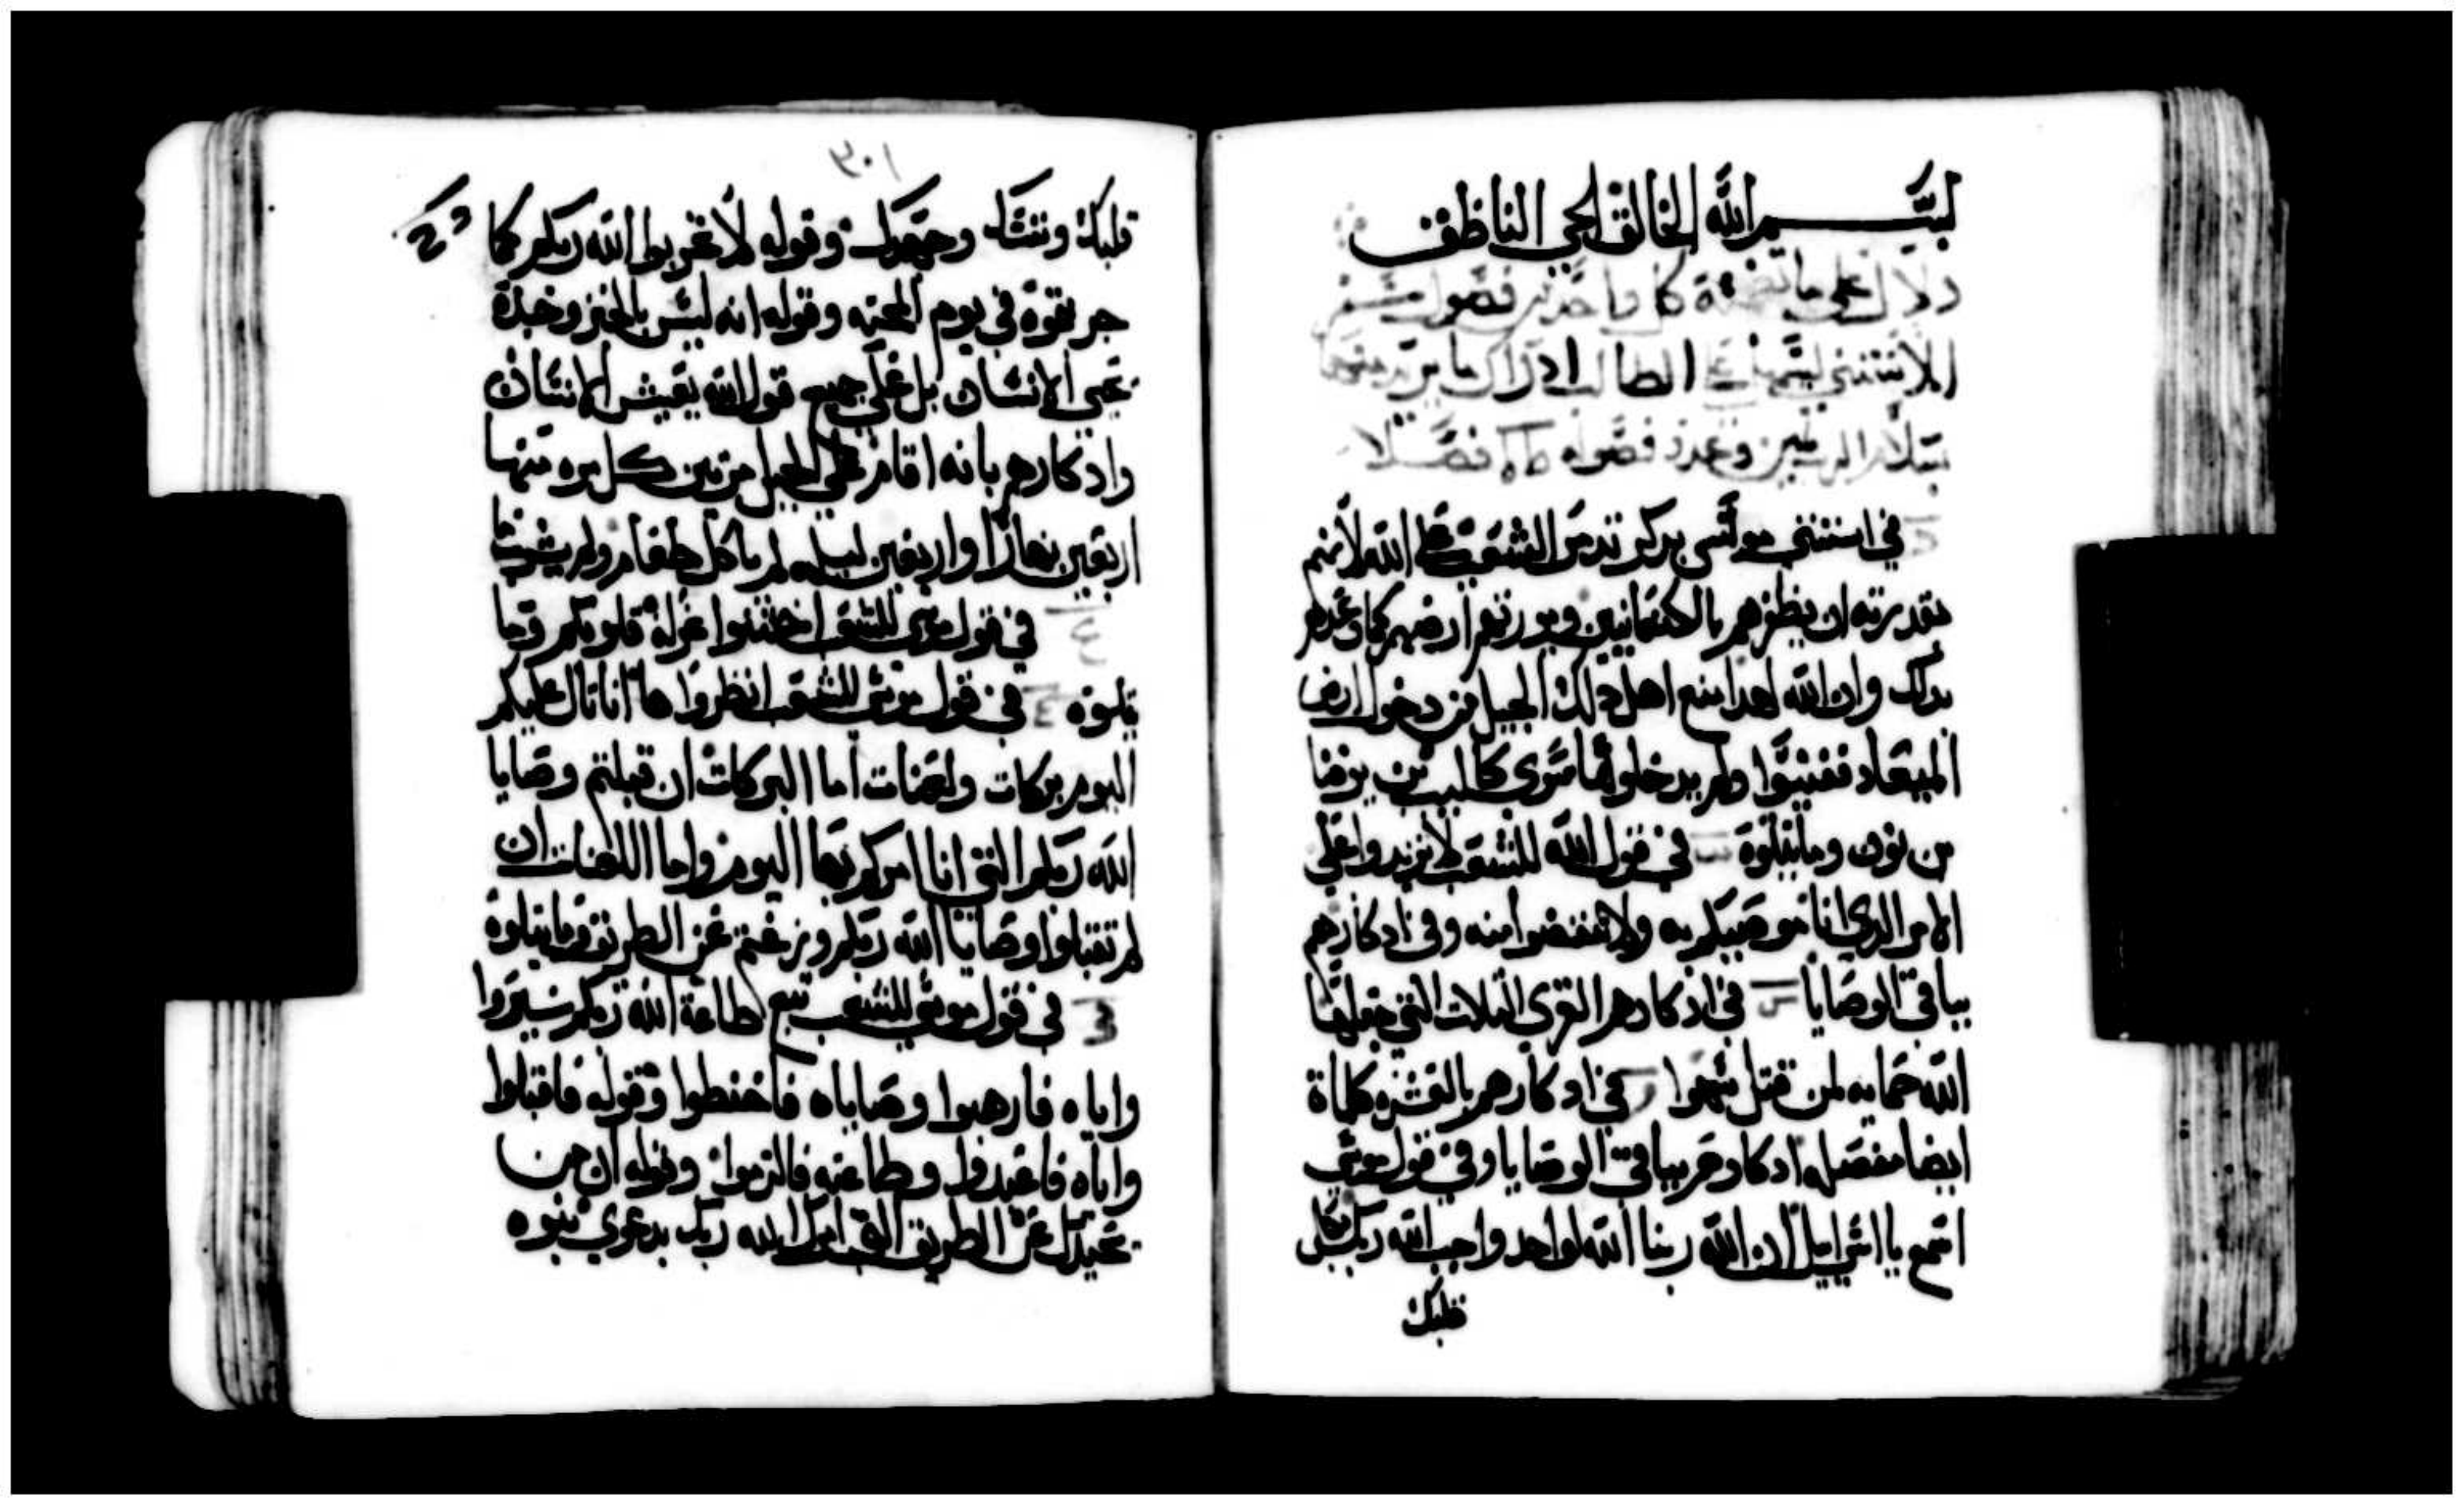 بسم الله الخالق الحي الناطق
دلال على ما تضمنه كل واحد من فصول سفر
الاستثنى ليسهل على الطالب ادراك ما يريد منها
بسلام الرب امين وعدد فصوله فصلا
في استثنى موسى يذكر تدمر الشعب على الله لانهم
بقدرته ان يظفرهم بالكنعانيين ويورثهم ارضهم كما وعدهم
بذلك وان الله لهذا منع اهل ذلك الجيل من دخول ارض
الميعاد ففنيوا ولم يدخلوها سوى كالب بن يوفنا
بن نون وما يتلوه في قول الله للشعب لا تزيدوا على
الامر الذي انا موصيكم به ولا تنقصوا منه وفي ادكارهم
بباقي الوصايا في ادكارهم القرى الثلاث التي جعلها
الله حمايه لمن قتل سهوا في ادكارهم بالعشره كلماة
ايضا مفصله ادكارهم بباقي الوصايا وفي قول موسى
اسمع يا اسراييل ان الله ربنا الله لواحد واحب الله ربك بكل
قلبك
٣٠١
قلبك ونفسك وجهدك وقوله لا تجربوا الله ربكم كما
جربتموه في يوم المحنه وقوله انه ليس بالخبز وحده
يحيى الانسان بل على جميع قول الله يعيش الانسان
وادكارهم بانه اقام على الجبل مرتين كل مره منها
اربعين نهارا واربعين ليله لم ياكل طعام ولم يشرب
في قول موسى للشعب اختنوا غرلة قلوبكم وما
يتلوه في قول موسى للشعب انظروا ها انا تال عليكم
اليوم بركات ولعنات اما البركات ان قبلتم وصايا
الله ربكم التي انا امركم بها اليوم واما اللعنات ان
لم تقبلوا وصايا الله ربكم وزغتم عن الطريق وما يتلوه
في قول موسى للشعب تبع طاعة الله ربكم سيروا
واياه فارهبوا وصاياه فاحفظوا وقوله فاقبلوا
واياه فاعبدوا وطاعته فالتزموا وقوله ان من
يحيدك عن الطريق التي امرك الله ربك بدعوي نبوه